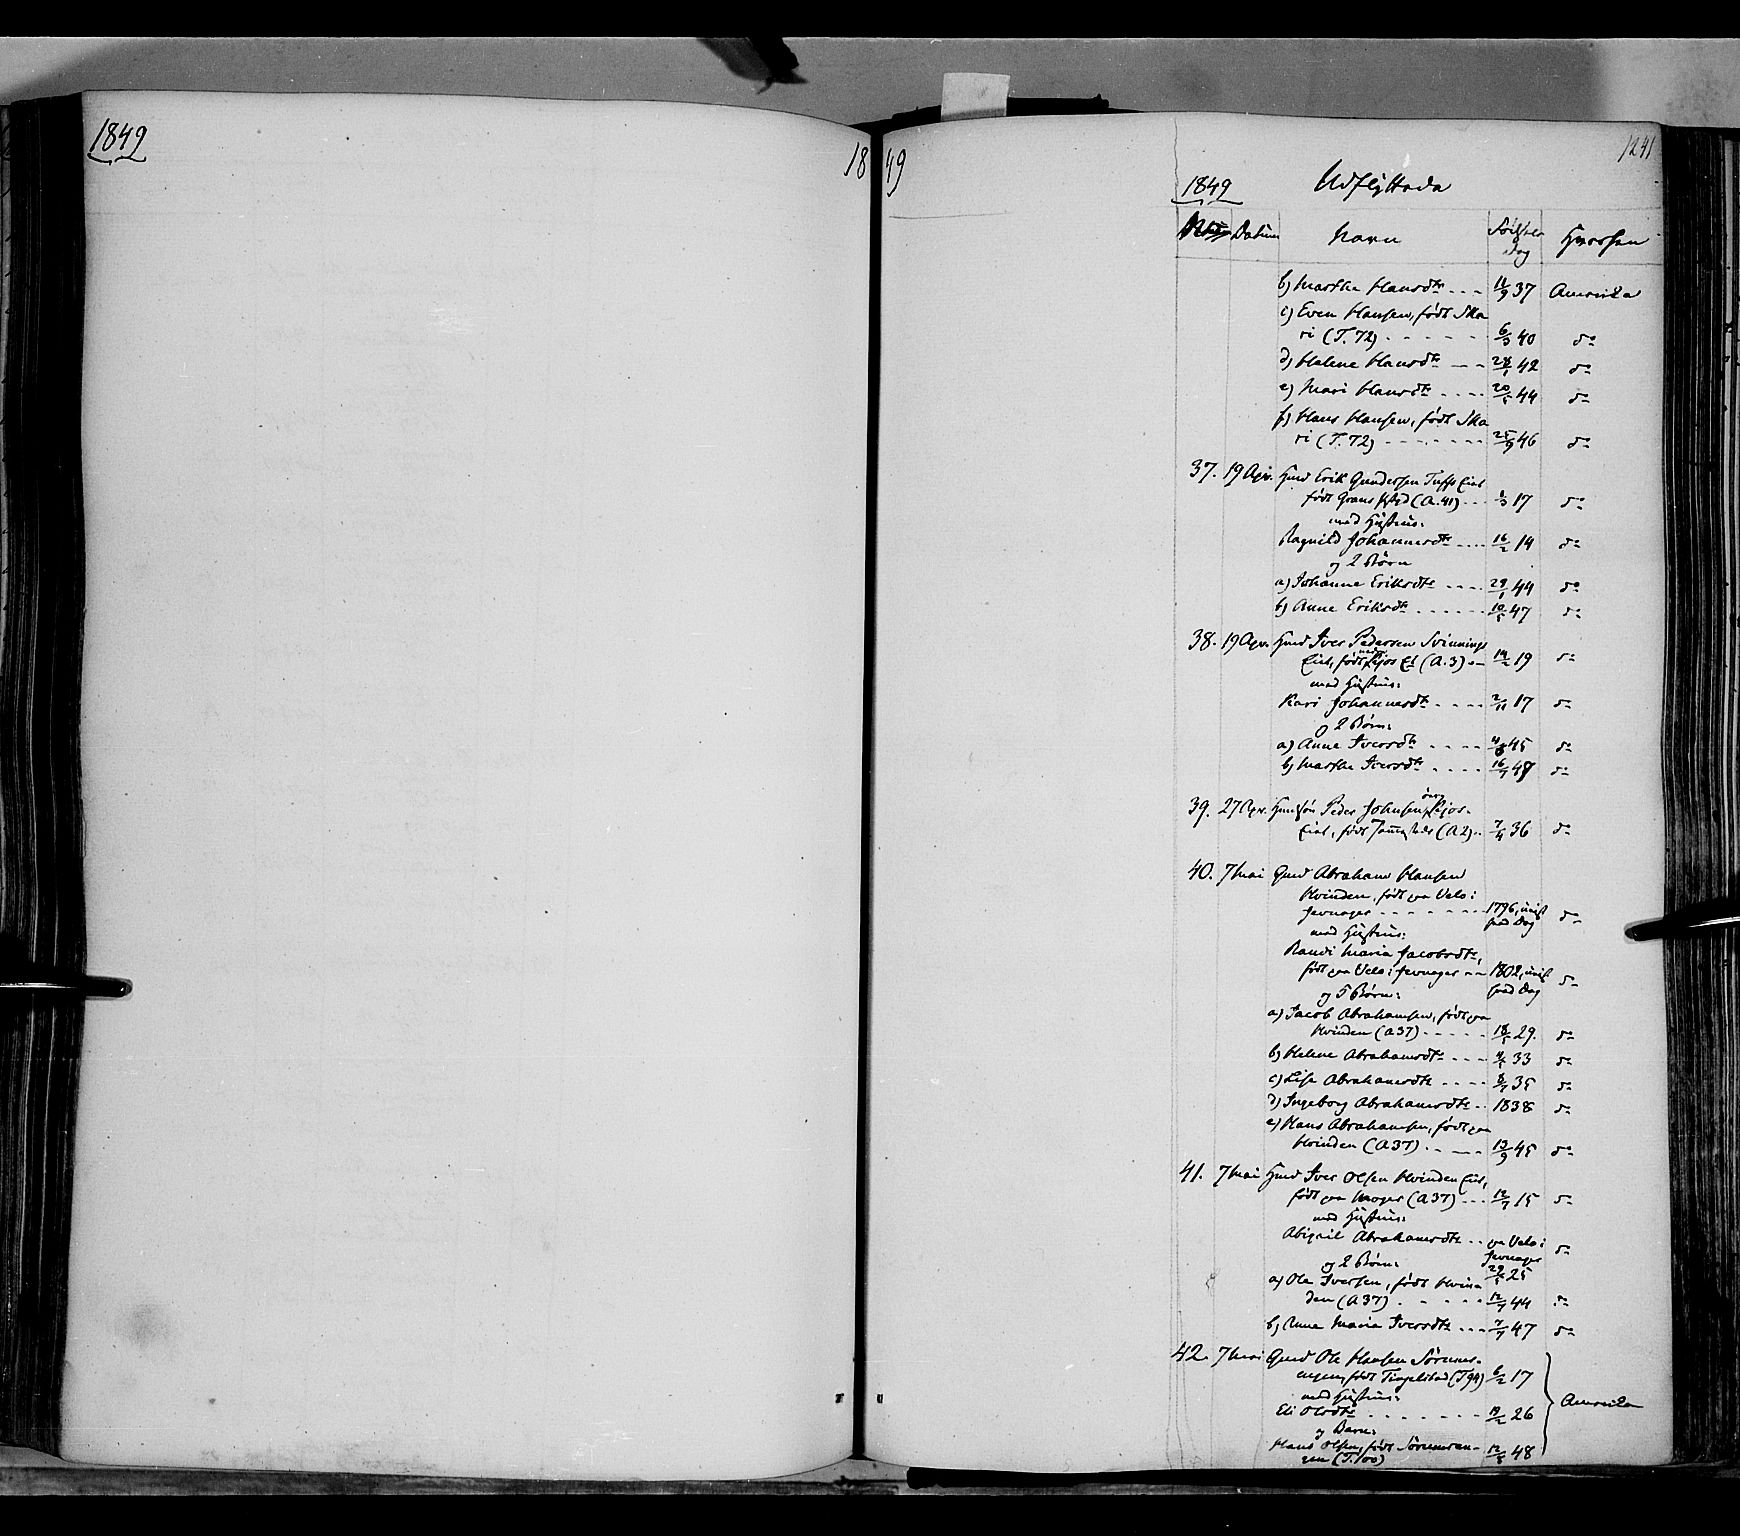 1849
1849
1241
1849 Udflyttede
Datum Navn Fødsels Dag Hvorhen
b) Marthe Hansdtr 11/9 37 Amerika
c) Even Hansen, født Ska
ri (T. 72) 6/3 40 do
d) Helene Hansdtr 28/1 42 do
e) Mari Hansdtr 20/5 44 do
f) Hans Hansen, født Ska
ri (T. 72) 25/9 46 do
37. 19 Apr. Hmd Erik Gundersen
født Grans (A. 41) 17 do
med Hustru:
Ragnild Johannesdtr 16/2 14 do
og 2 Børn
a) Johanne Eriksdtr 29/1 44 do
b) Anne Eriksdtr 10/5 47 do
38. 19 Apr. Hmd Iver Pedersen Svinnings
Eie, født nedre Kjos Ei (A. 3) 14/2 19 do
med Hustru:
Kari Johannesdtr 2/11 17 do
og 2 Børn:
a) Anne Iversdtr 45 do
b) Marthe Iversdtr 16/7 do
39. 27 Apr. Peder Johnsen, Kjos-
Eie, født sammesteds (A 2) 7/4 36 do
40. 7 Mai Gmd Abraham Hansen
Hvinden, født paa Velo i
Jevnager 1796, uvist
hvad Dag do
med Hustru:
Randi Maria Jacobsdtr,
født paa Velo i Jevnager 1802, uvist
hvad Dag do
og 5 Børn:
a) Jacob Abrahamsen, født paa
Hvinden (A 37) 18/5 29. do
b) Helene Abrahamsdtr 33 do
c) Lise Abrahamsdtr 35 do
d) Ingeborg Abrahamsdtr 1838 do
e) Hans Abrahamsen, født paa
Hvinden (A 37) 13/9 45 do
41. 7 Mai Hmd Iver Olsen Hvinden Eie,
født paa Moger (A 37) 12/7 15 do
med Hustru:
Abigail Abrahamsdtr paa Velo i
Jevnager do
og 2 Børn: 25
a) Ole Iversen, født Hvin
den (A 37) 12/7 44 do
b) Anne Maria Iversdtr 7/7 47 do
42. 7 Mai Gmd Ole Hansen Sørums-
engen, født Tingelstad (T 94) 6/2 17
med Hustru:
Eli Olsdtr 19/2 26 Amerika
og Barn:
Hans Olsen, født Sørumsen-
gen (T. 100) 12/8 48